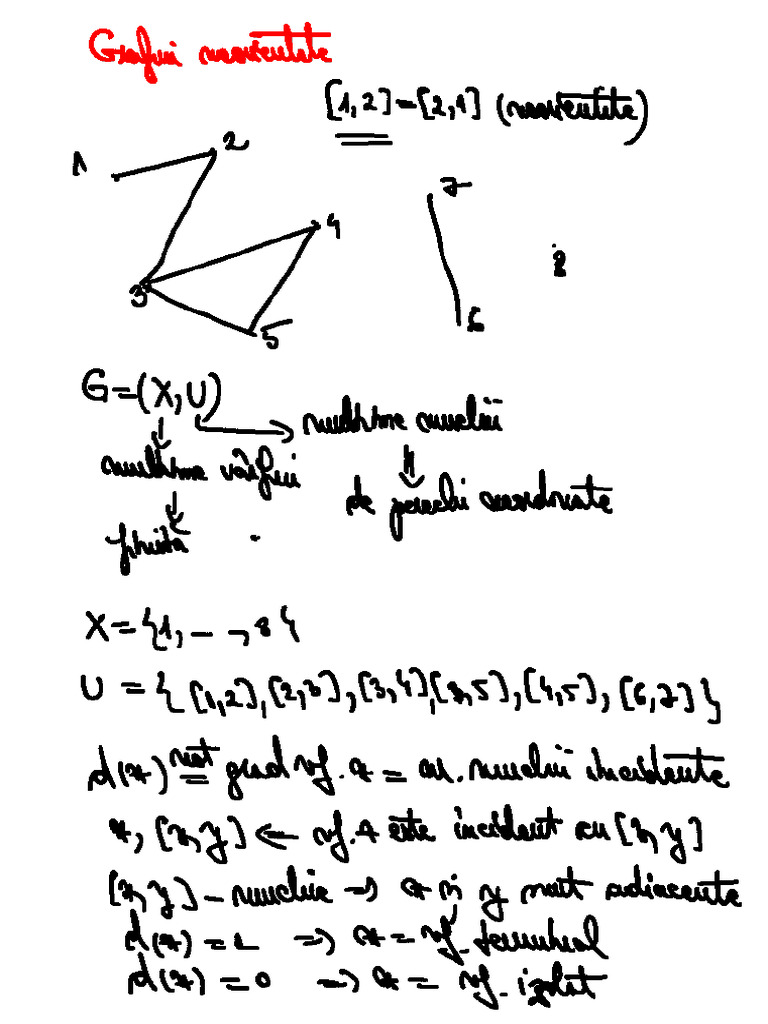 Grafuri neorientate
[1,2]=[2,1] (neorientate)
1
2
3
4
5
7
6
8
G=(X,U)
mulțime muchii
mulțime vârfuri
de perechi neordonate
finită
X={1,_ _,8}
U = {[1,2],[2,3],[3,4],[3,5],[4,5],[6,7]}
d(x) not= grad vf. x = nr. muchii incidente
x, [x,y] ← vf. x este incident cu [x,y]
[x,y] - muchie => x și y sunt adiacente
d(x) = 1 => x = vf. terminal
d(x) = 0 => x = vf. izolat